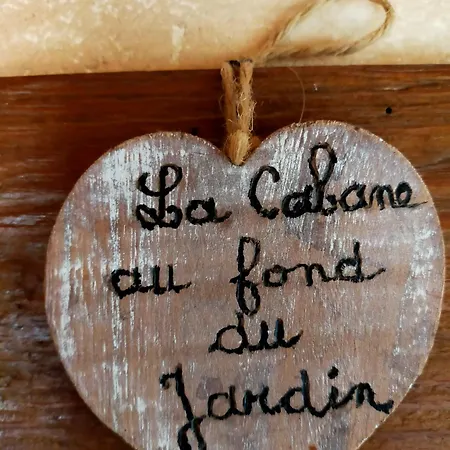 La Cabane
au fond
du
Jardin